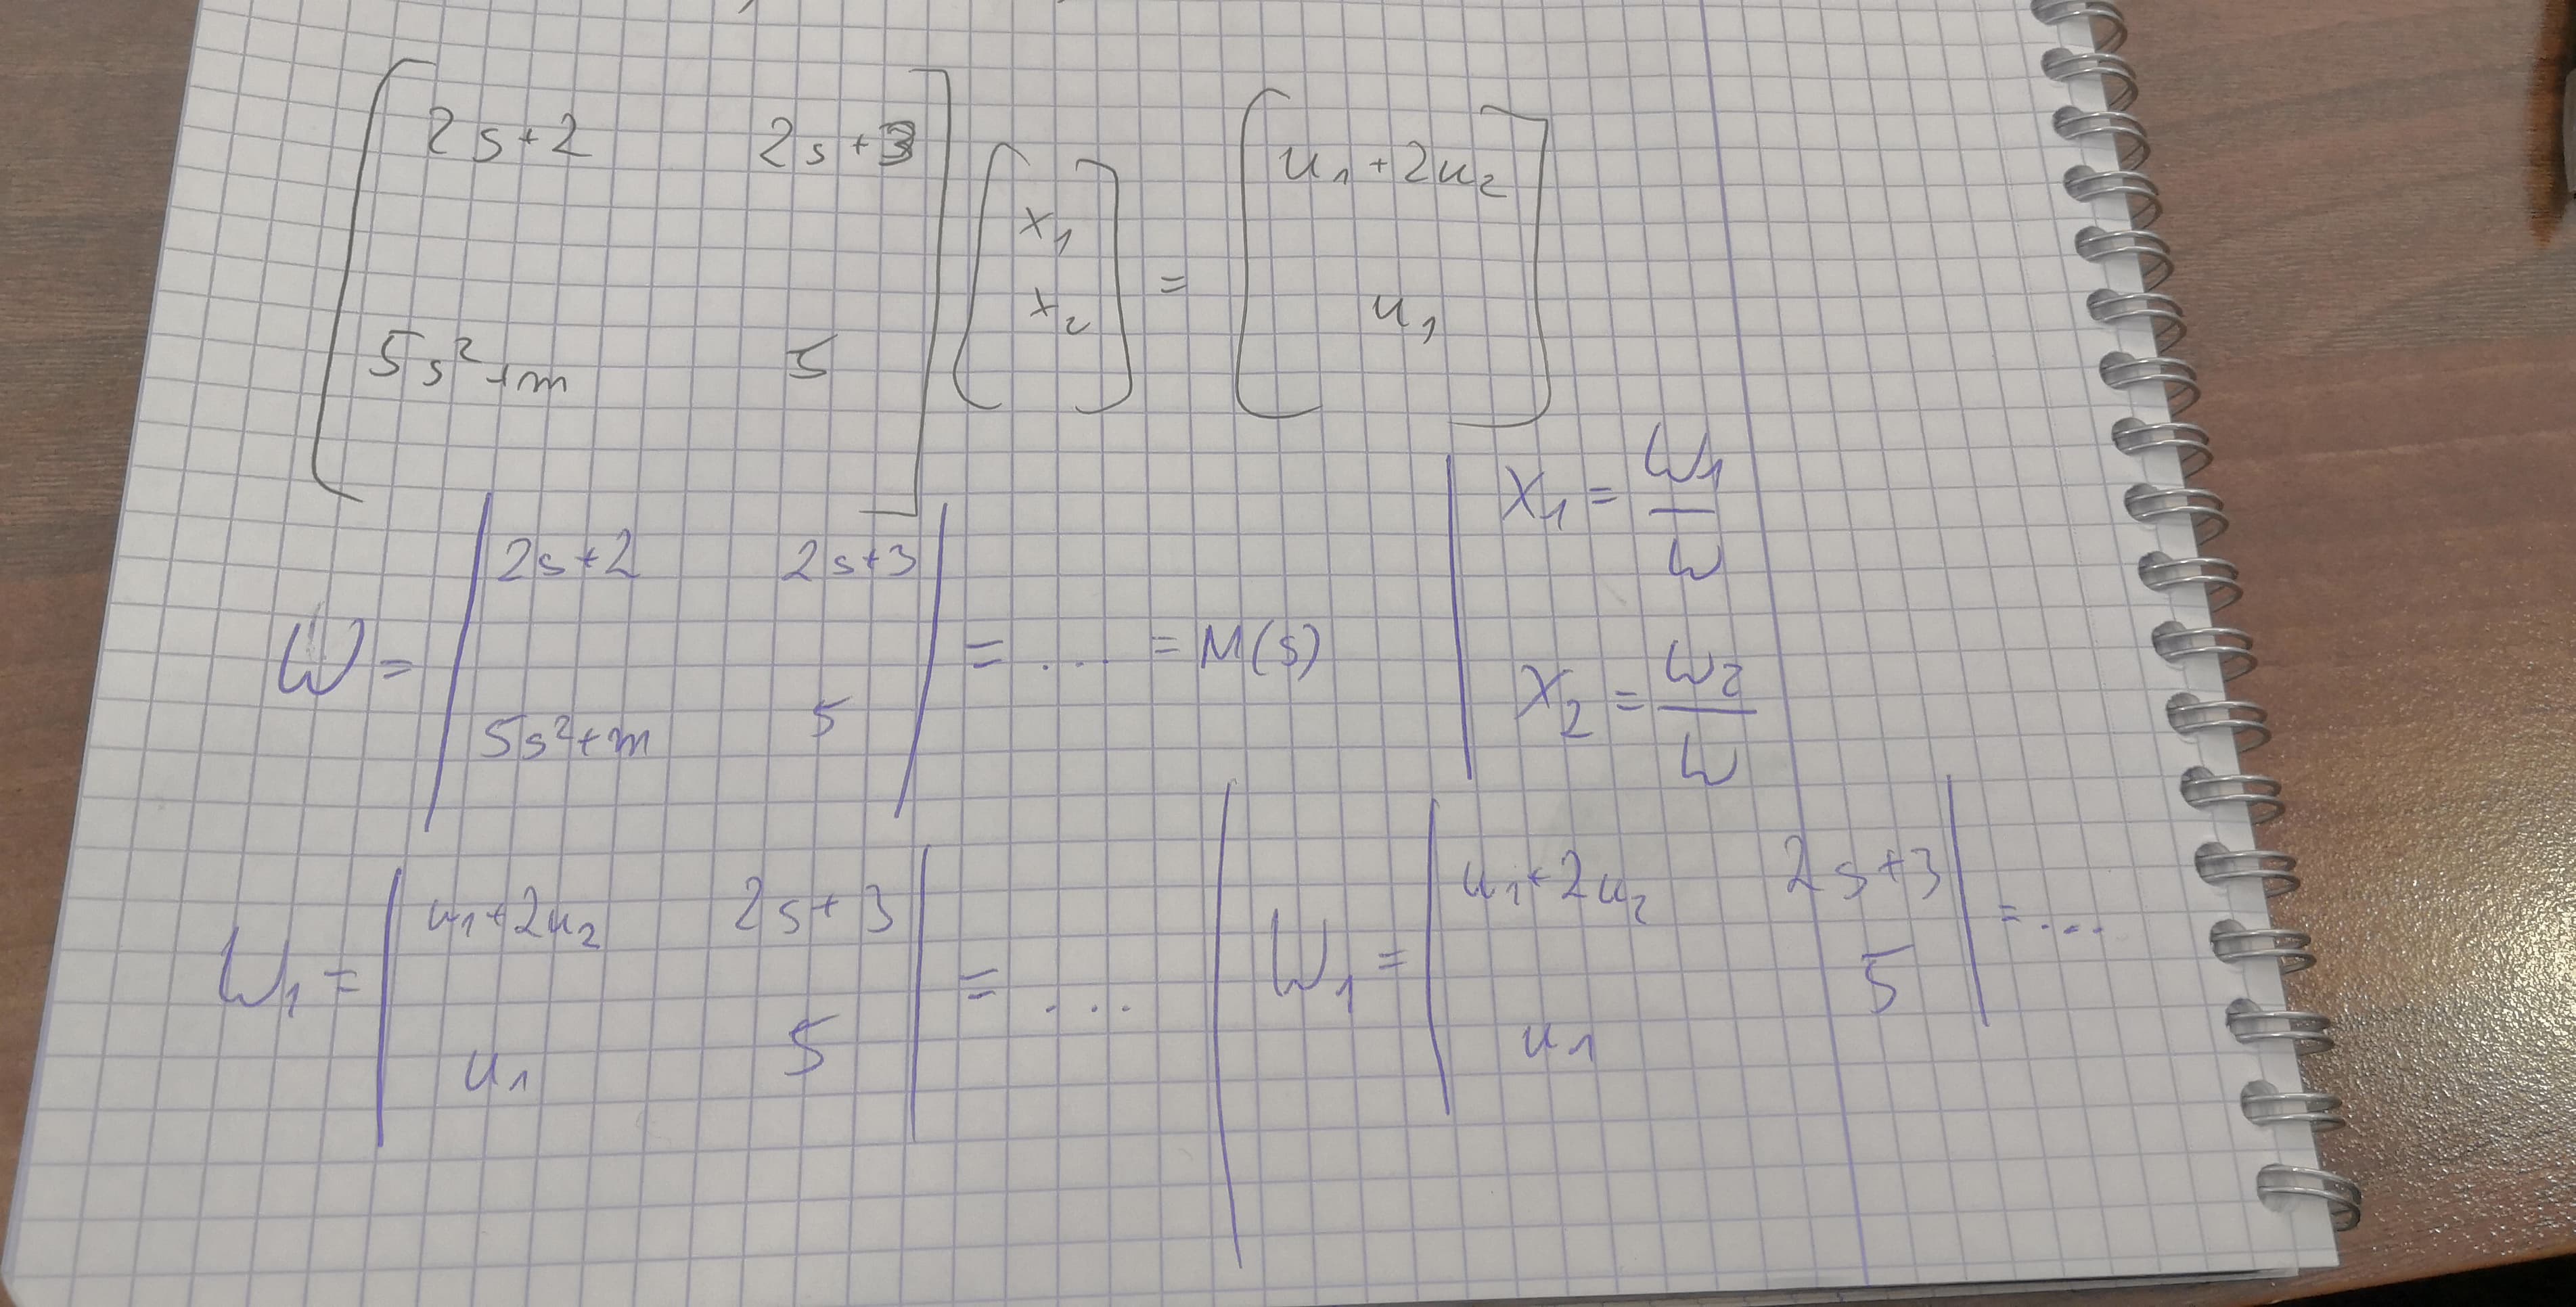 [ 2s+2 2s+3 ; 5s²+m 5 ] [ x₁ ; x₂ ] = [ u₁+2u₂ ; u₁ ]
W = | 2s+2 2s+3 ; 5s²+m 5 | = ... = M(s)
x₁ = W₁/W
x₂ = W₂/W
W₁ = | u₁+2u₂ 2s+3 ; u₁ 5 | = ....
W₁ = | u₁+2u₂ 2s+3 ; u₁ 5 | = ...